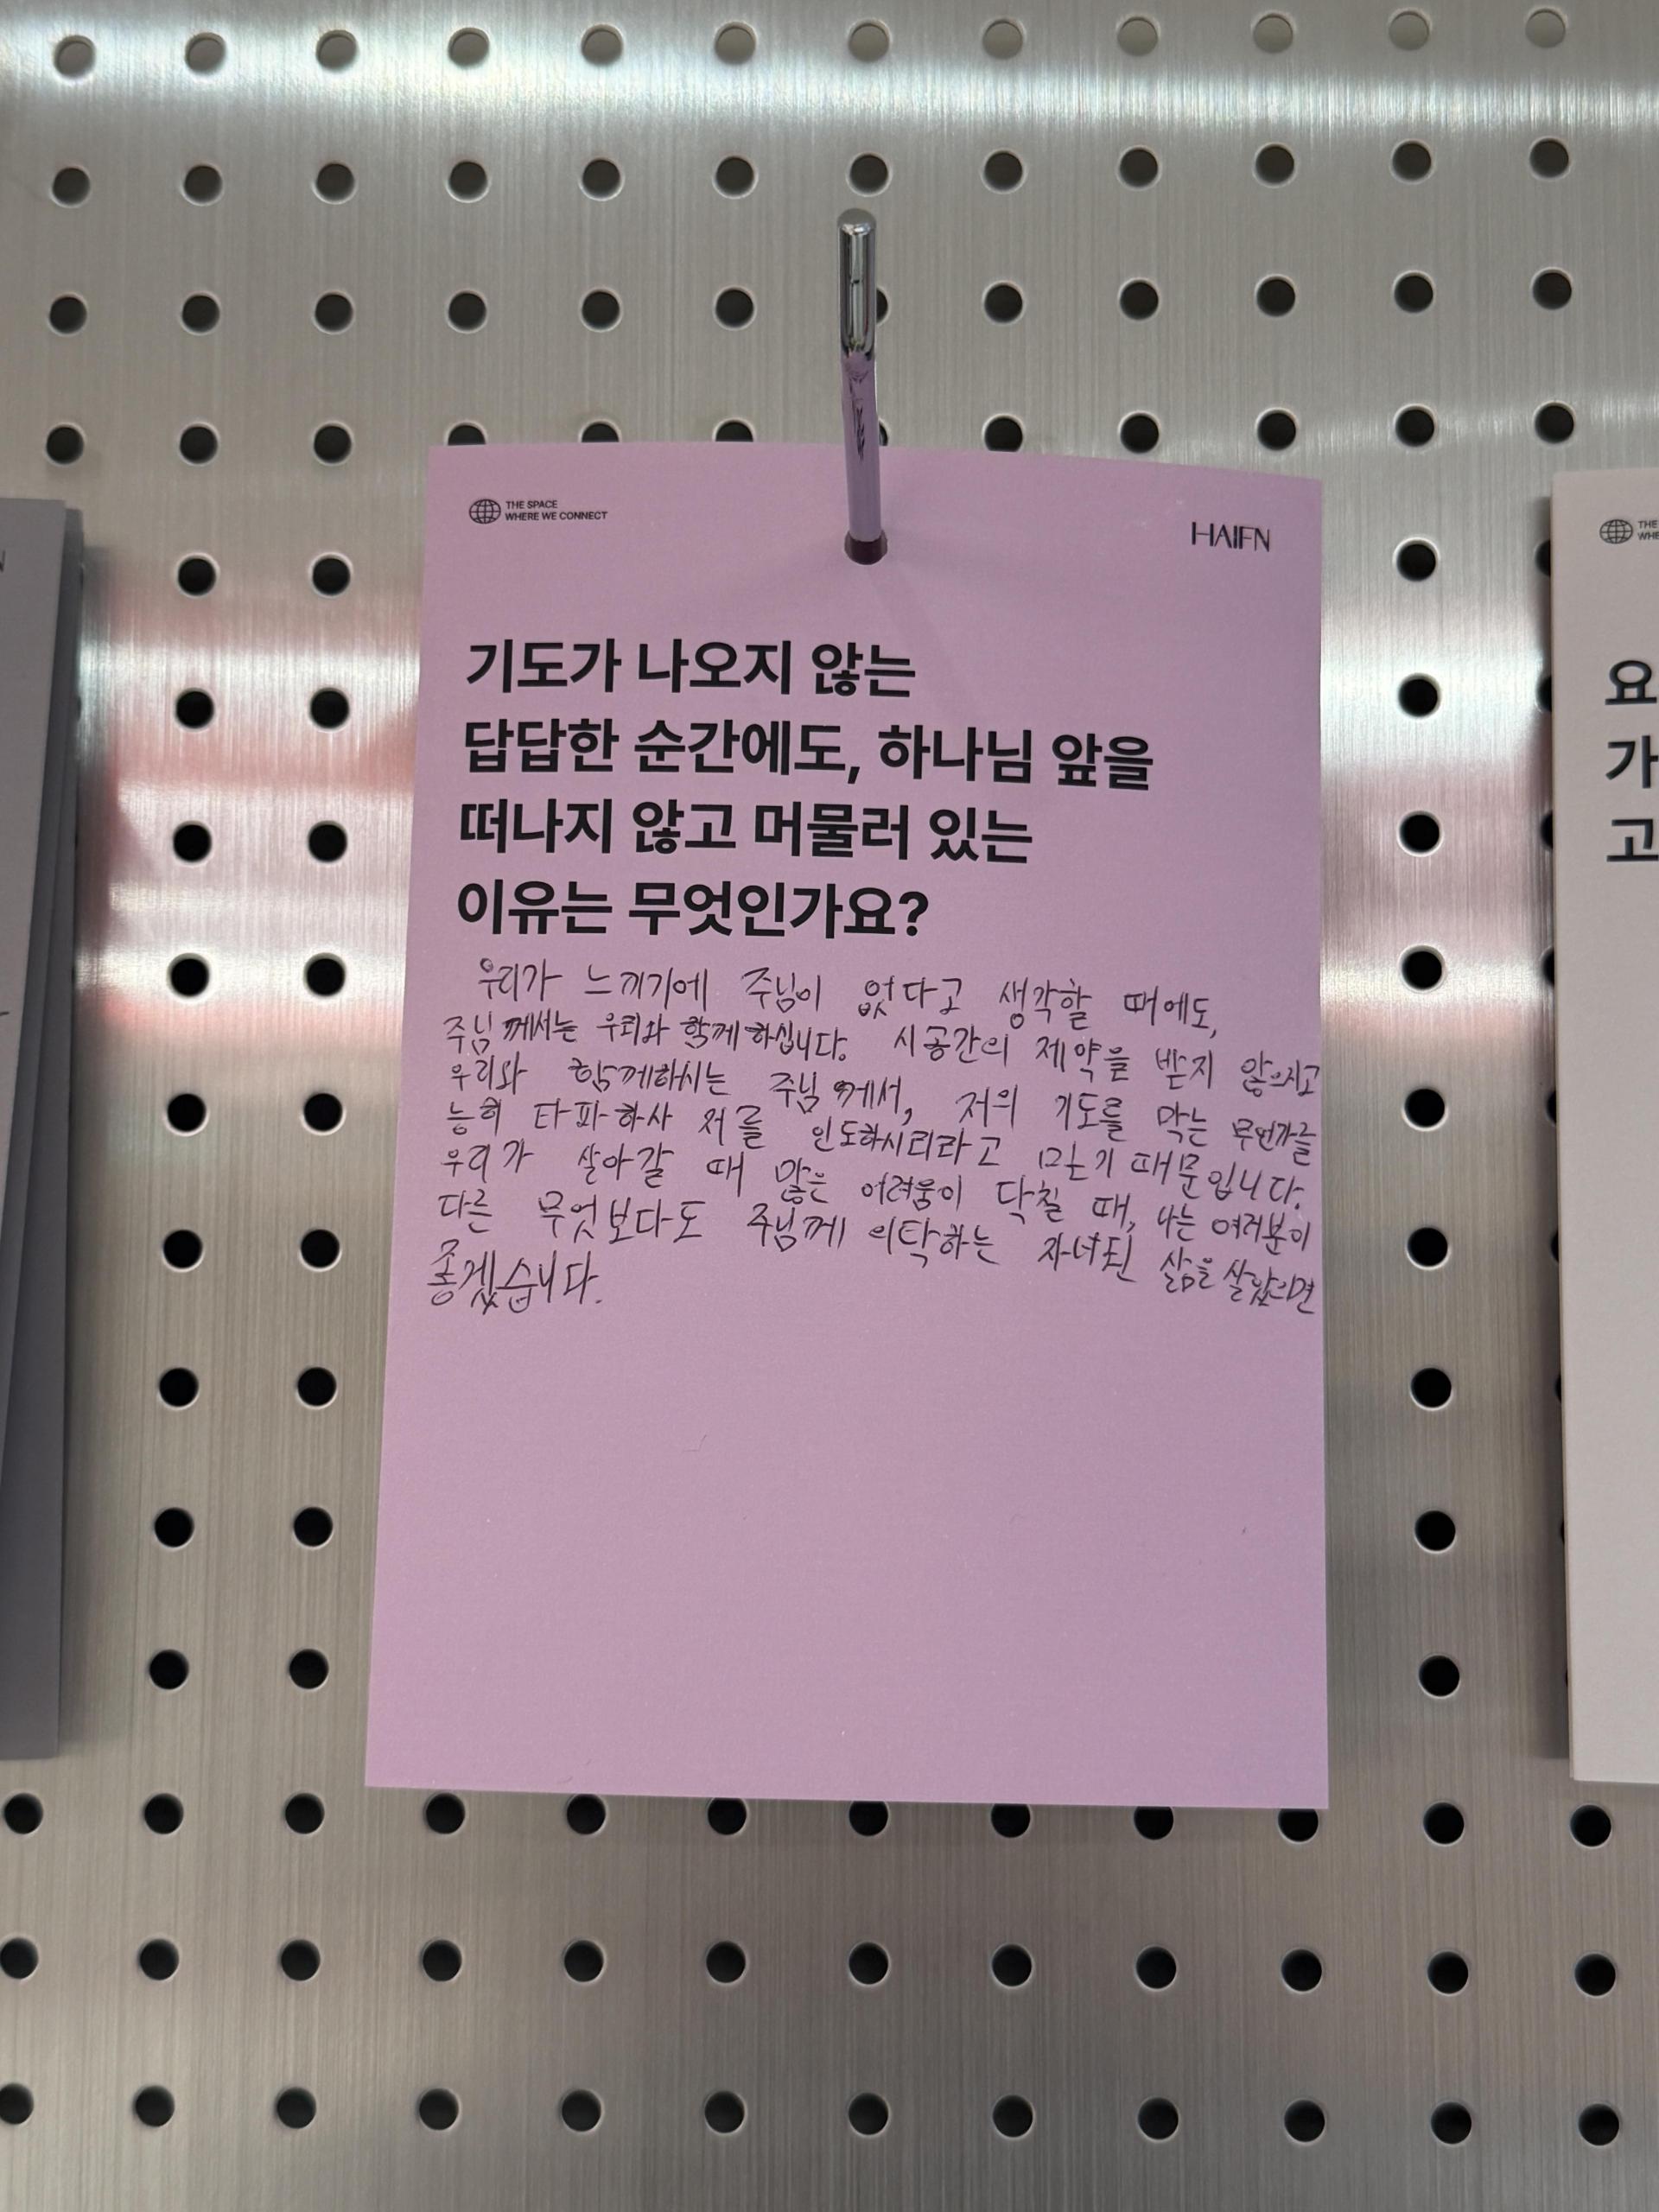 THE SPACE
WHERE WE CONNECT
HAIFN
기도가 나오지 않는
답답한 순간에도, 하나님 앞을
떠나지 않고 머물러 있는
이유는 무엇인가요?
우리가 느끼기에 주님이 없다고 생각할 때에도,
주님께서는 우리와 함께하십니다. 시공간의 제약을 받지 않으시고
우리와 함께하시는 주님께서, 저의 기도를 막는 무언가를
능히 타파하사 저를 인도하시리라고 믿기 때문입니다.
우리가 살아갈 때 많은 어려움이 닥칠 때, 나는 여러분이
다른 무엇보다도 주님께 의탁하는 자녀된 삶을 살았으면
좋겠습니다.
THE
WHE
요
가
고
N